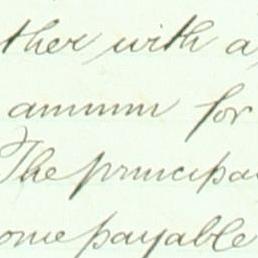 ther with a
annum for
The principa
ome payable